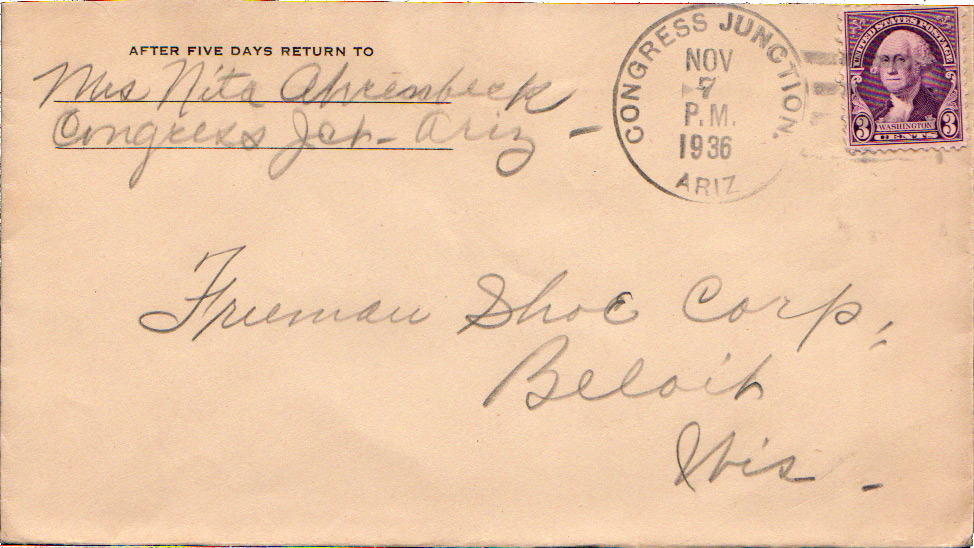 AFTER FIVE DAYS RETURN TO
Mrs Nita Ahrenbeck
Congress Jct - Ariz -
CONGRESS JUNCTION,
NOV
7
P.M.
1936
ARIZ
UNITED STATES POSTAGE
WASHINGTON
3 CENTS 3
Freeman Shoe Corp,
Beloit
Wis -